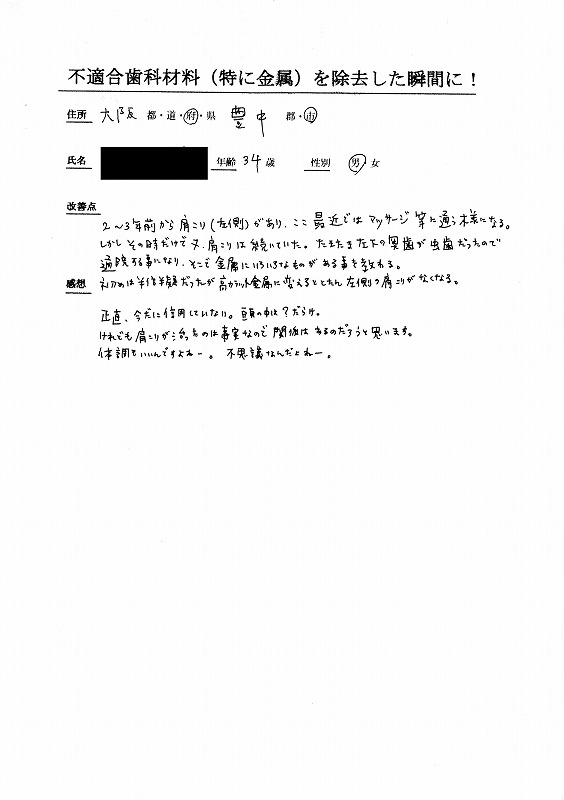 不適合歯科材料（特に金属）を除去した瞬間に！
住所 大阪 都・道・府・県 豊中 郡・市
氏名 年齢 34 歳 性別 男 女
改善点
2〜3年前から肩こり(左側)があり、ここ最近ではマッサージ等に通う様になる。
しかしその時だけで又、肩こりは続いていた。たまたま左下の奥歯が虫歯だったので
通院する事になり、そこで金属にいろいろなものがある事を教わる。
感想 初めは半信半疑だったが高カラット金属に変えるととたん左側の肩こりがなくなる。
正直、今だに信用していない。頭の中は？だらけ。
けれども肩こりが治ったのは事実なので関係はあるのだろうと思います。
体調もいいんですよねー。不思議なんだよねー。